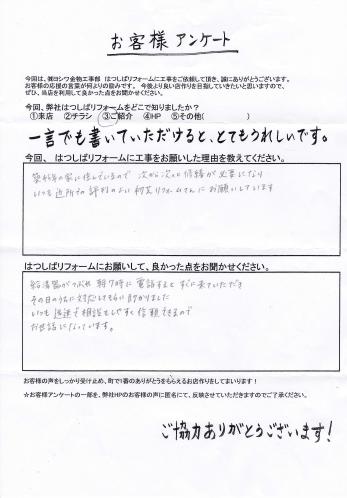 お客様アンケート
今回は、㈱ヨシワ金物工事部 はつしばリフォームに工事をご依頼して頂き、誠にありがとうございます。
お客様の応援の言葉が何よりの励みです。 今後より良い店作りを目指していきたいと思いますので、
ぜひ、当店を利用して良かった点をお聞かせください。
今回、弊社はつしばリフォームをどこで知りましたか?
①来店 ②チラシ ③ご紹介 ④HP ⑤その他( )
一言でも書いていただけると、とてもうれしいです。
今回、 はつしばリフォームに工事をお願いした理由を教えてください。
築45年の家に住んでいるので 次から次へと修繕が必要になり
いつも近所での評判のよい初芝リフォームさんにお願いしています
はつしばリフォームにお願いして、良かった点をお聞かせください。
給湯器がつぶれ 朝7時に電話すると すぐに来ていただき
その日のうちに対応してもらい助かりました
いつも迅速で相談もしやすく信頼できるので
お世話になっています。
お客様の声をしっかり受け止め、町で1番のありがとうをもらえるお店作りをしてまいります!
☆お客様アンケートの一部を、弊社HPのお客様の声に匿名にて、反映させていただきますのでご了承ください。
ご協力ありがとうございます!